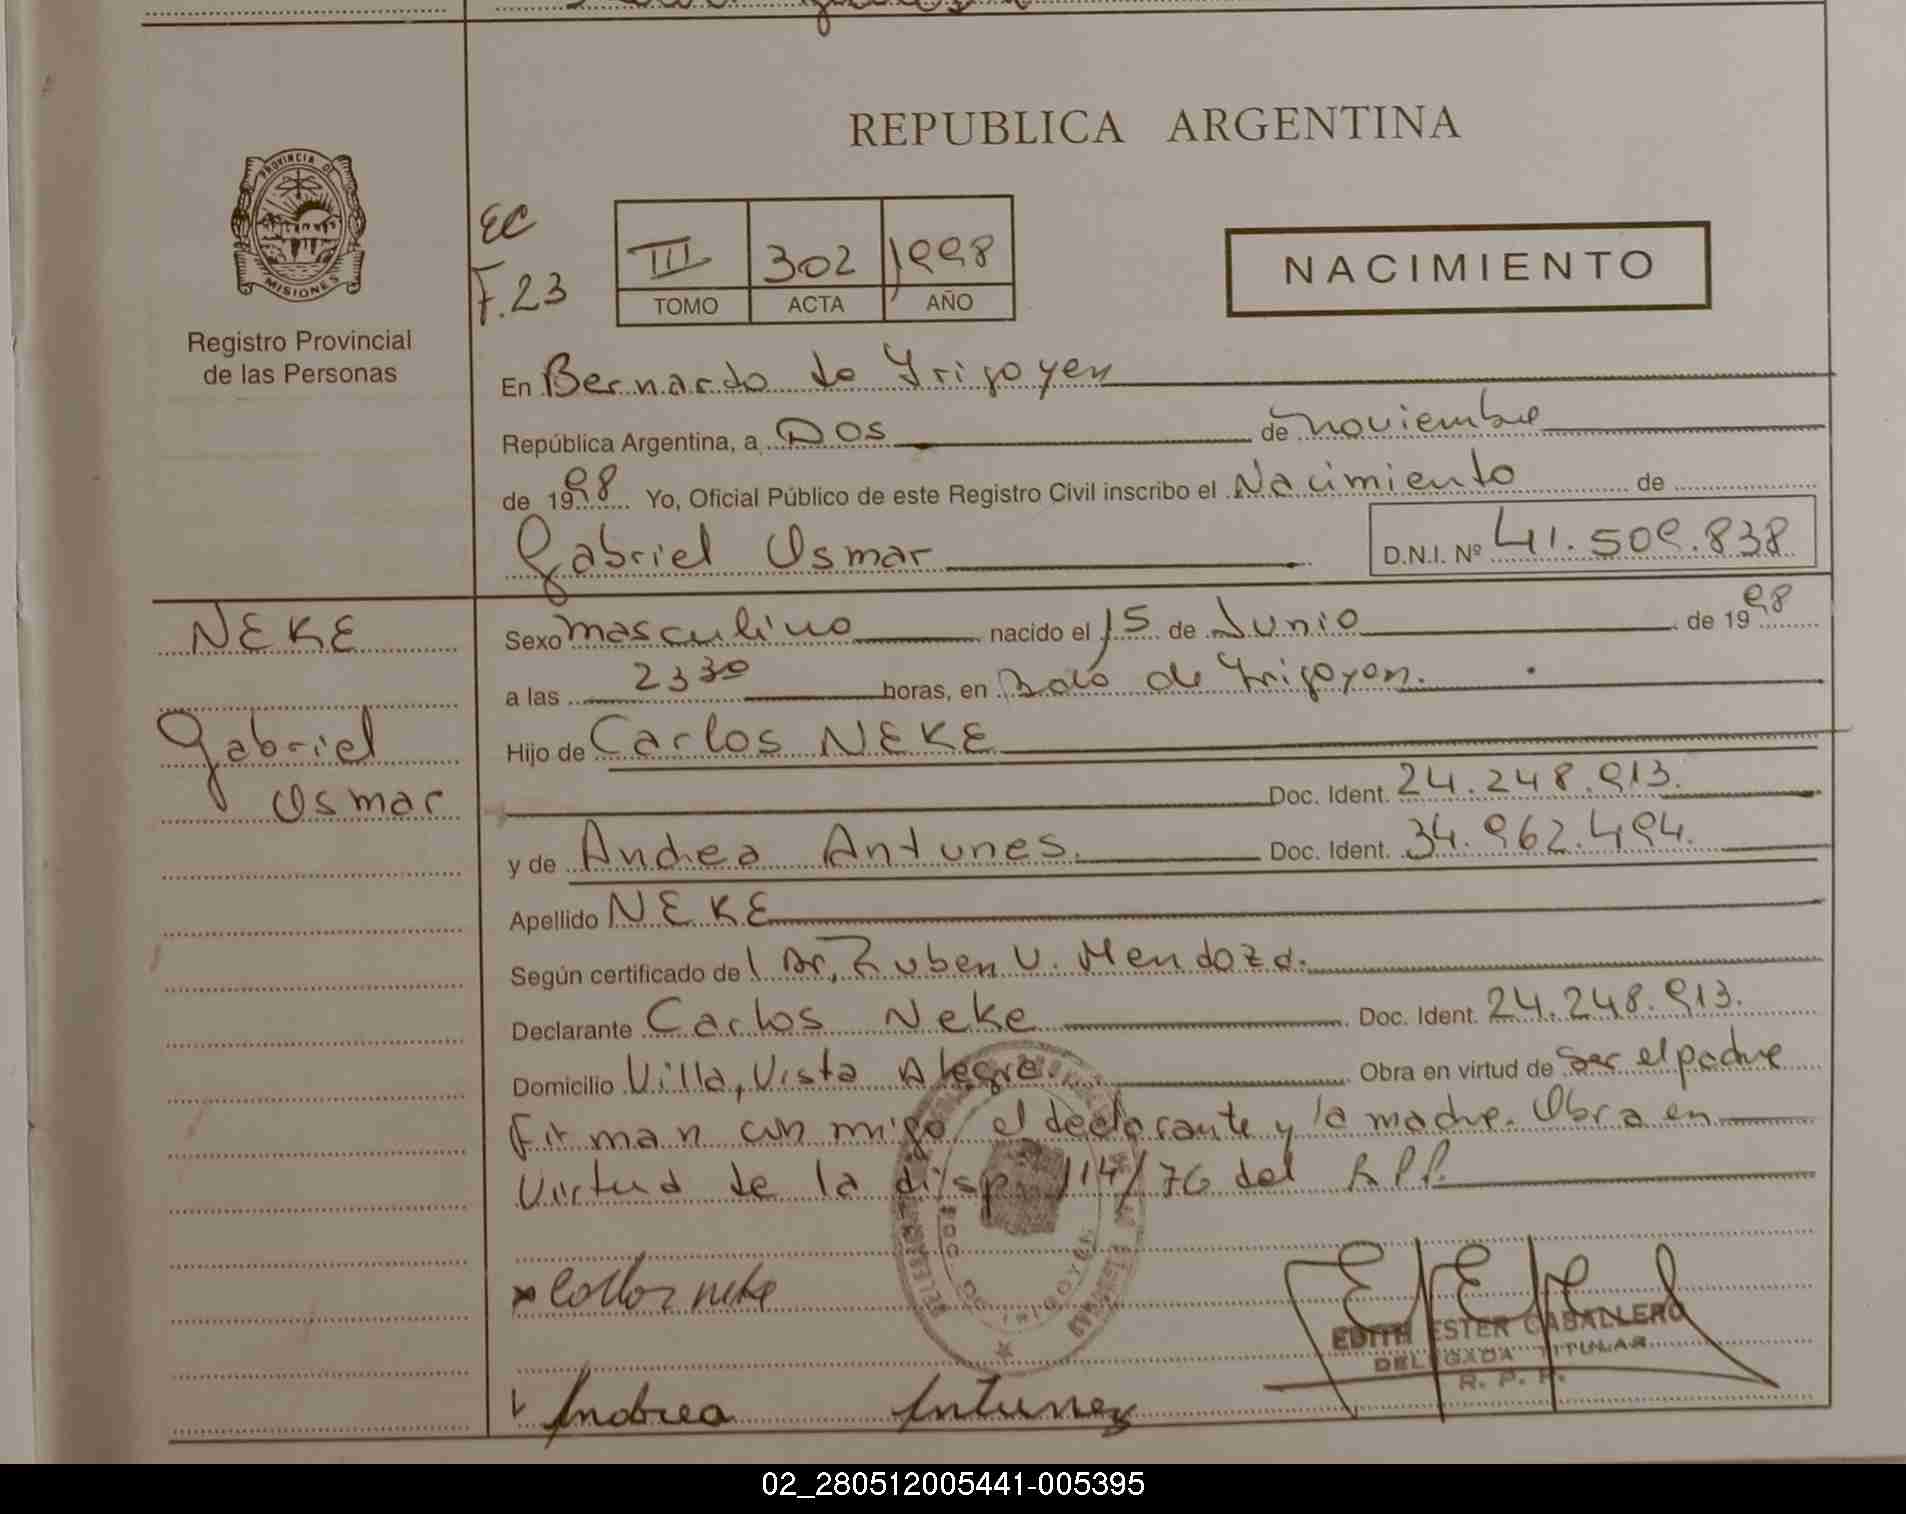 REPUBLICA ARGENTINA
PROVINCIA DE
MISIONES
Registro Provincial
de las Personas
EC
F.23
III 302 1998
TOMO ACTA AÑO
NACIMIENTO
En Bernardo de Yrigoyen
República Argentina, a Dos de noviembre
de 1998 Yo, Oficial Público de este Registro Civil inscribo el Nacimiento de
Gabriel Osmar D.N.I. Nº 41.509.838
NEKE
Gabriel
Osmar
Sexo masculino nacido el 15 de Junio de 1998
a las 23 30 horas, en Bdo de Yrigoyen.
Hijo de Carlos NEKE
Doc. Ident. 24.248.913.
y de Andrea Antunes. Doc. Ident. 34.962.494.
Apellido NEKE
Según certificado del Dr. Ruben V. Mendoza.
Declarante Carlos Neke Doc. Ident. 24.248.913.
Domicilio Villa, Vista Alegre. Obra en virtud de ser el padre
Firman con migo el declarante y la madre. Obra en
virtud de la disp. 114/76 del RPP.
Carlos neke
EDITH ESTER CABALLERO
DELEGADA TITULAR
R. P. P.
Andrea Antunes
02_280512005441-005395